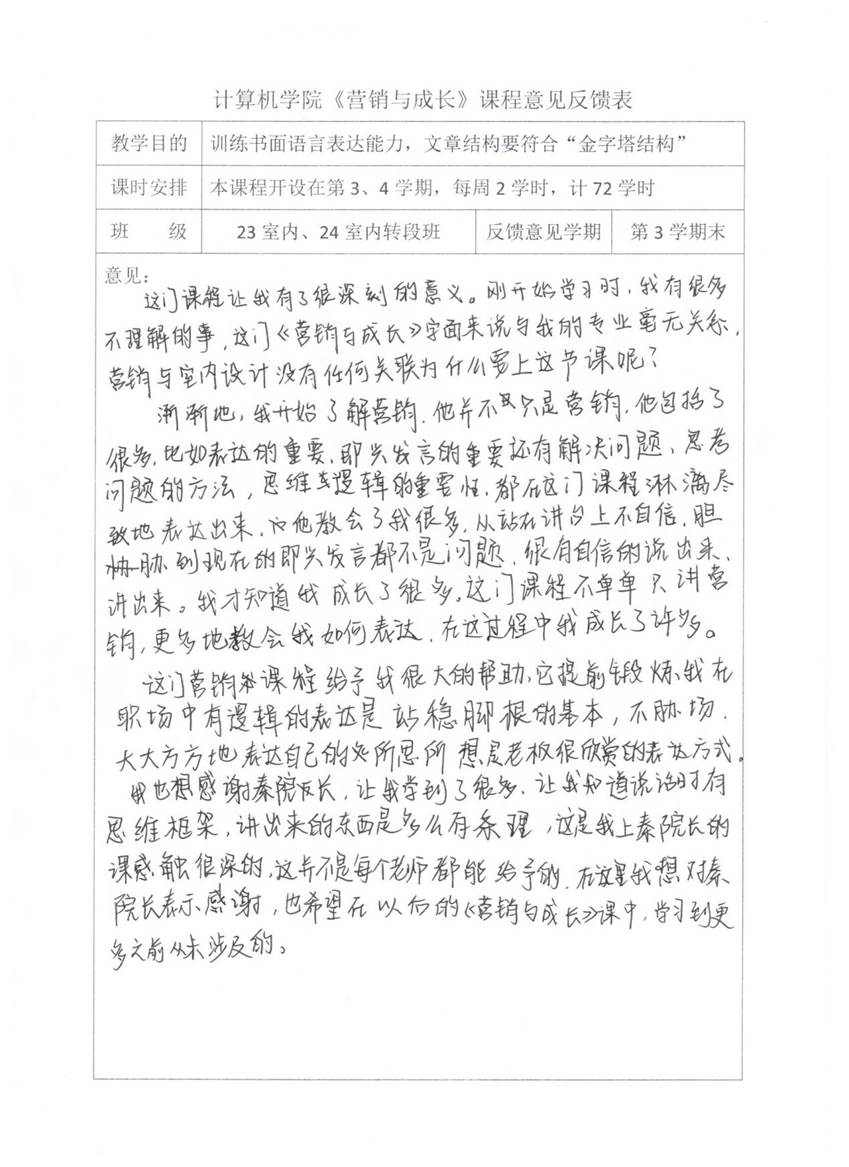 计算机学院《营销与成长》课程意见反馈表
教学目的 训练书面语言表达能力，文章结构要符合“金字塔结构”
课时安排 本课程开设在第 3、4 学期，每周 2 学时，计 72 学时
班 级 23 室内、24 室内转段班 反馈意见学期 第 3 学期末
意见：
这门课程让我有了很深刻的意义。刚开始学习时，我有很多
不理解的事，这门《营销与成长》字面来说与我的专业毫无关系，
营销与室内设计没有任何关联为什么要上这节课呢？
渐渐地，我开始了解营销，他并不只是营销，他包括了
很多，比如表达的重要、即兴发言的重要还有解决问题、思考
问题的方法，思维与逻辑的重要性，都在这门课程淋漓尽
致地表达出来，他教会了我很多，从站在讲台上不自信，胆
怵到现在的即兴发言都不是问题，很有自信的说出来、
讲出来。我才知道我成长了很多，这门课程不单单只讲营
销，更多地教会我如何表达，在这过程中我成长了许多。
这门营销课程给予我很大的帮助，它提前锻炼我在
职场中有逻辑的表达是站稳脚根的基本，不胁场，
大大方方地表达自己的所思所想是老板很欣赏的表达方式。
我也想感谢秦院长，让我学到了很多，让我知道说话时有
思维框架，讲出来的东西是多么有条理，这是我上秦院长的
课感触很深的，这并不是每个老师都能给予的，在这里我想对秦
院长表示感谢，也希望在以后的《营销与成长》课中，学习到更
多之前从未涉及的。